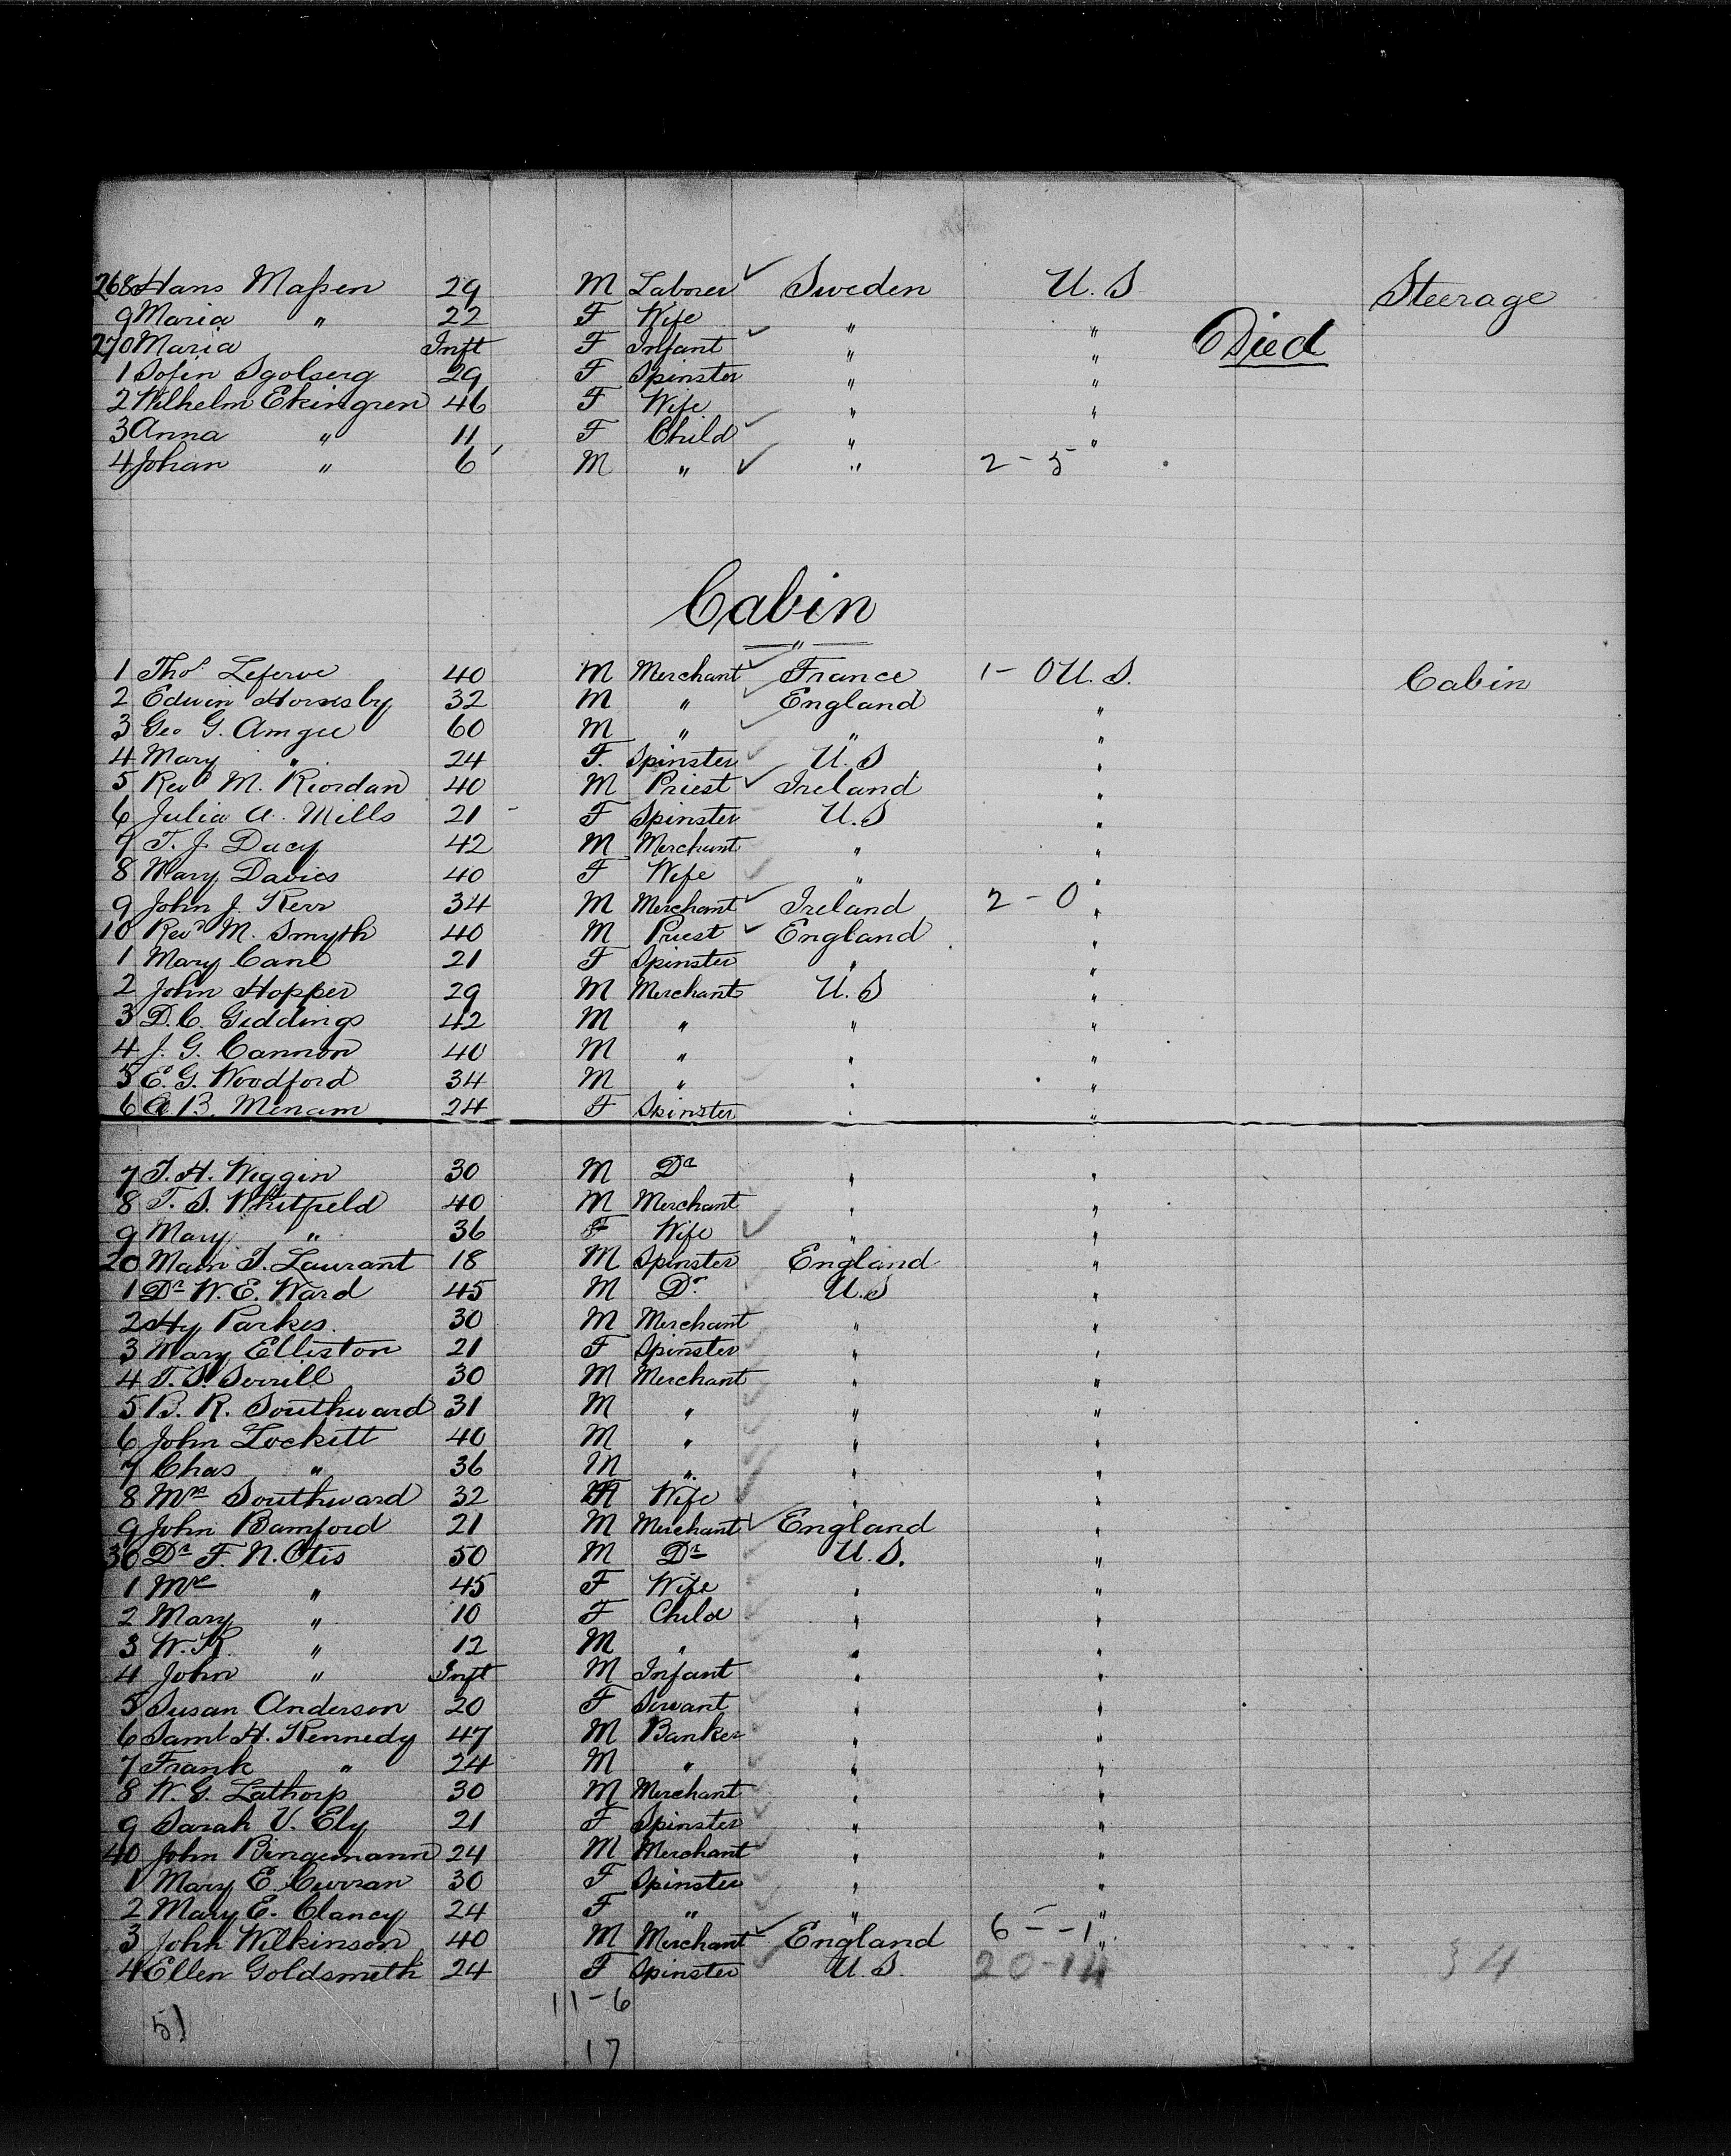 268 Hans Maßen 29 M Laborer Sweden U.S Steerage
9 Maria " 22 F Wife " "
270 Maria Inft F Infant " " Died
1 Sofin Sgolserg 29 F Spinster " "
2 Wilhelm Ekingren 46 F Wife " "
3 Anna " 11 F Child " "
4 Johan " 6 M " " 2 - 5
Cabin
"
1 Thos. Leferve 40 M Merchant France 1 - 0 U.S. Cabin
2 Edwin Hornsby 32 M " England "
3 Geo G. Amgee 60 M " " "
4 Mary " 24 F. Spinster U.S "
5 Revd M. Riordan 40 M Priest Ireland "
6 Julia A. Mills 21 F Spinster U.S "
7 T. J. Ducy 42 M Merchant " "
8 Mary Davies 40 F Wife " "
9 John J. Kerr 34 M Merchant Ireland 2 - 0 "
10 Revd M. Smyth 40 M Priest England "
1 Mary Cane 21 F Spinster " "
2 John Hopper 29 M Merchant U.S "
3 D.C. Giddings 42 M " " "
4 J. G. Cannon 40 M " " "
5 E. G. Woodford 34 M " " "
6 A B. Menam 24 F Spinster " "
7 T. H. Wiggin 30 M Dr " "
8 T. S. Whitfield 40 M Merchant " "
9 Mary " 36 F Wife " "
20 Main T. Laurant 18 M Spinster England "
1 Dr W. E. Ward 45 M Dr. U.S "
2 Hy Parkes. 30 M Merchant " "
3 Mary Elliston 21 F Spinster " "
4 T. S. Serrill 30 M Merchant " "
5 B. R. Southward 31 M " " "
6 John Lockett 40 M " " "
7 Chas " 36 M " " "
8 Mrs Southward 32 Wife " "
9 John Bamford 21 M Merchant England "
30 Dr F. N. Otis 50 M Dr U.S. "
1 Mrs " 45 F Wife " "
2 Mary " 10 F Child " "
3 W. K. " 12 M " " "
4 John " Inft M Infant " "
5 Susan Anderson 20 F Servant " "
6 Saml H. Kennedy 47 M Banker " "
7 Frank " 24 M " " "
8 W. G. Lathorp 30 M Merchant " "
9 Sarah V. Ely 21 F Spinster " "
40 John Bingemann 24 M Merchant " "
1 Mary E. Curran 30 F Spinster " "
2 Mary E. Clancy 24 F " " "
3 John Wilkinson 40 M Merchant England 6 - - 1 "
4 Ellen Goldsmith 24 F Spinster U.S. 20-14 34
51 11-6
17